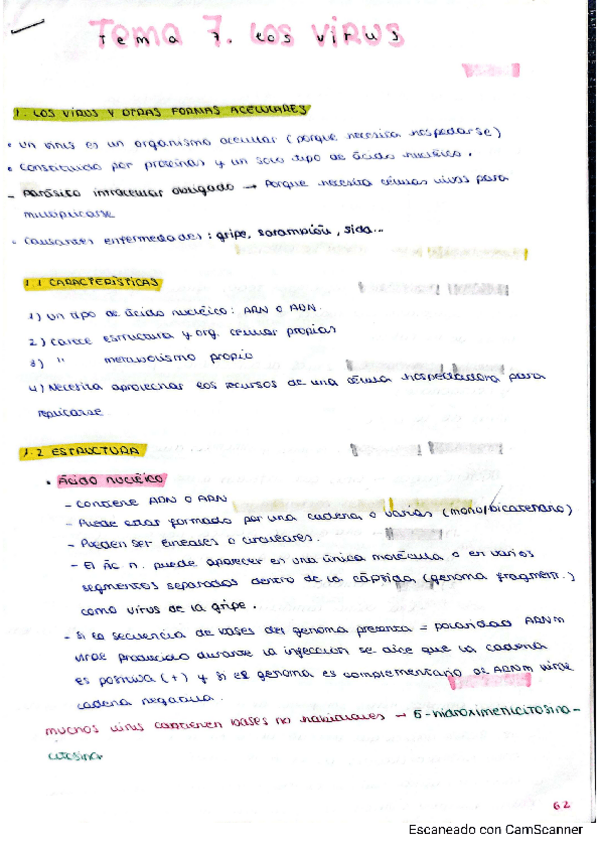 Tema 7. LOS VIRUS
1. LOS VIRUS Y OTRAS FORMAS ACELULARES
• Un virus es un organismo acelular (porque necesita hospedarse)
• Constituido por proteínas y un solo tipo de ácido nucleico.
- Parásito intracelular obligado → Porque necesita células vivas para
multiplicarse
• Causantes enfermedades: gripe, sarampión, sida...
1.1 CARACTERÍSTICAS
1) Un tipo de ácido nucleico: ARN o ADN.
2) carece estructura y org. celular propias
3) " metabolismo propio
4) Necesita aprovechar los recursos de una célula hospedadora para
replicarse.
1.2 ESTRUCTURA
• Ácido nucleico
- Contiene ADN o ARN
- Puede estar formado por una cadena o varias (mono/bicatenario)
- Pueden ser lineales o circulares.
- El Ác. n. puede aparecer en una única molécula o en varios
segmentos separados dentro de la cápsida (genoma fragment.)
como virus de la gripe.
- Si la secuencia de bases del genoma presenta = polaridad ARNm
viral producido durante la infección se dice que la cadena
es positiva (+) y si el genoma es complementario al ARNm viral
cadena negativa.
Muchos virus contienen bases no habituales → 5-hidroximetilcitosina-
citosina.
62
Escaneado con CamScanner